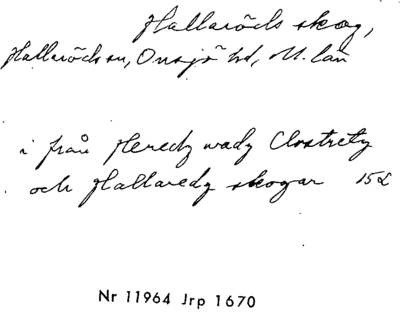 Hallaröds skog,
Hallaröds sn, Onsjö hd, M. län
i från Heredz wadz Clostretz
och Hallaredz skogar 152
Nr 11964 Jrp 1670